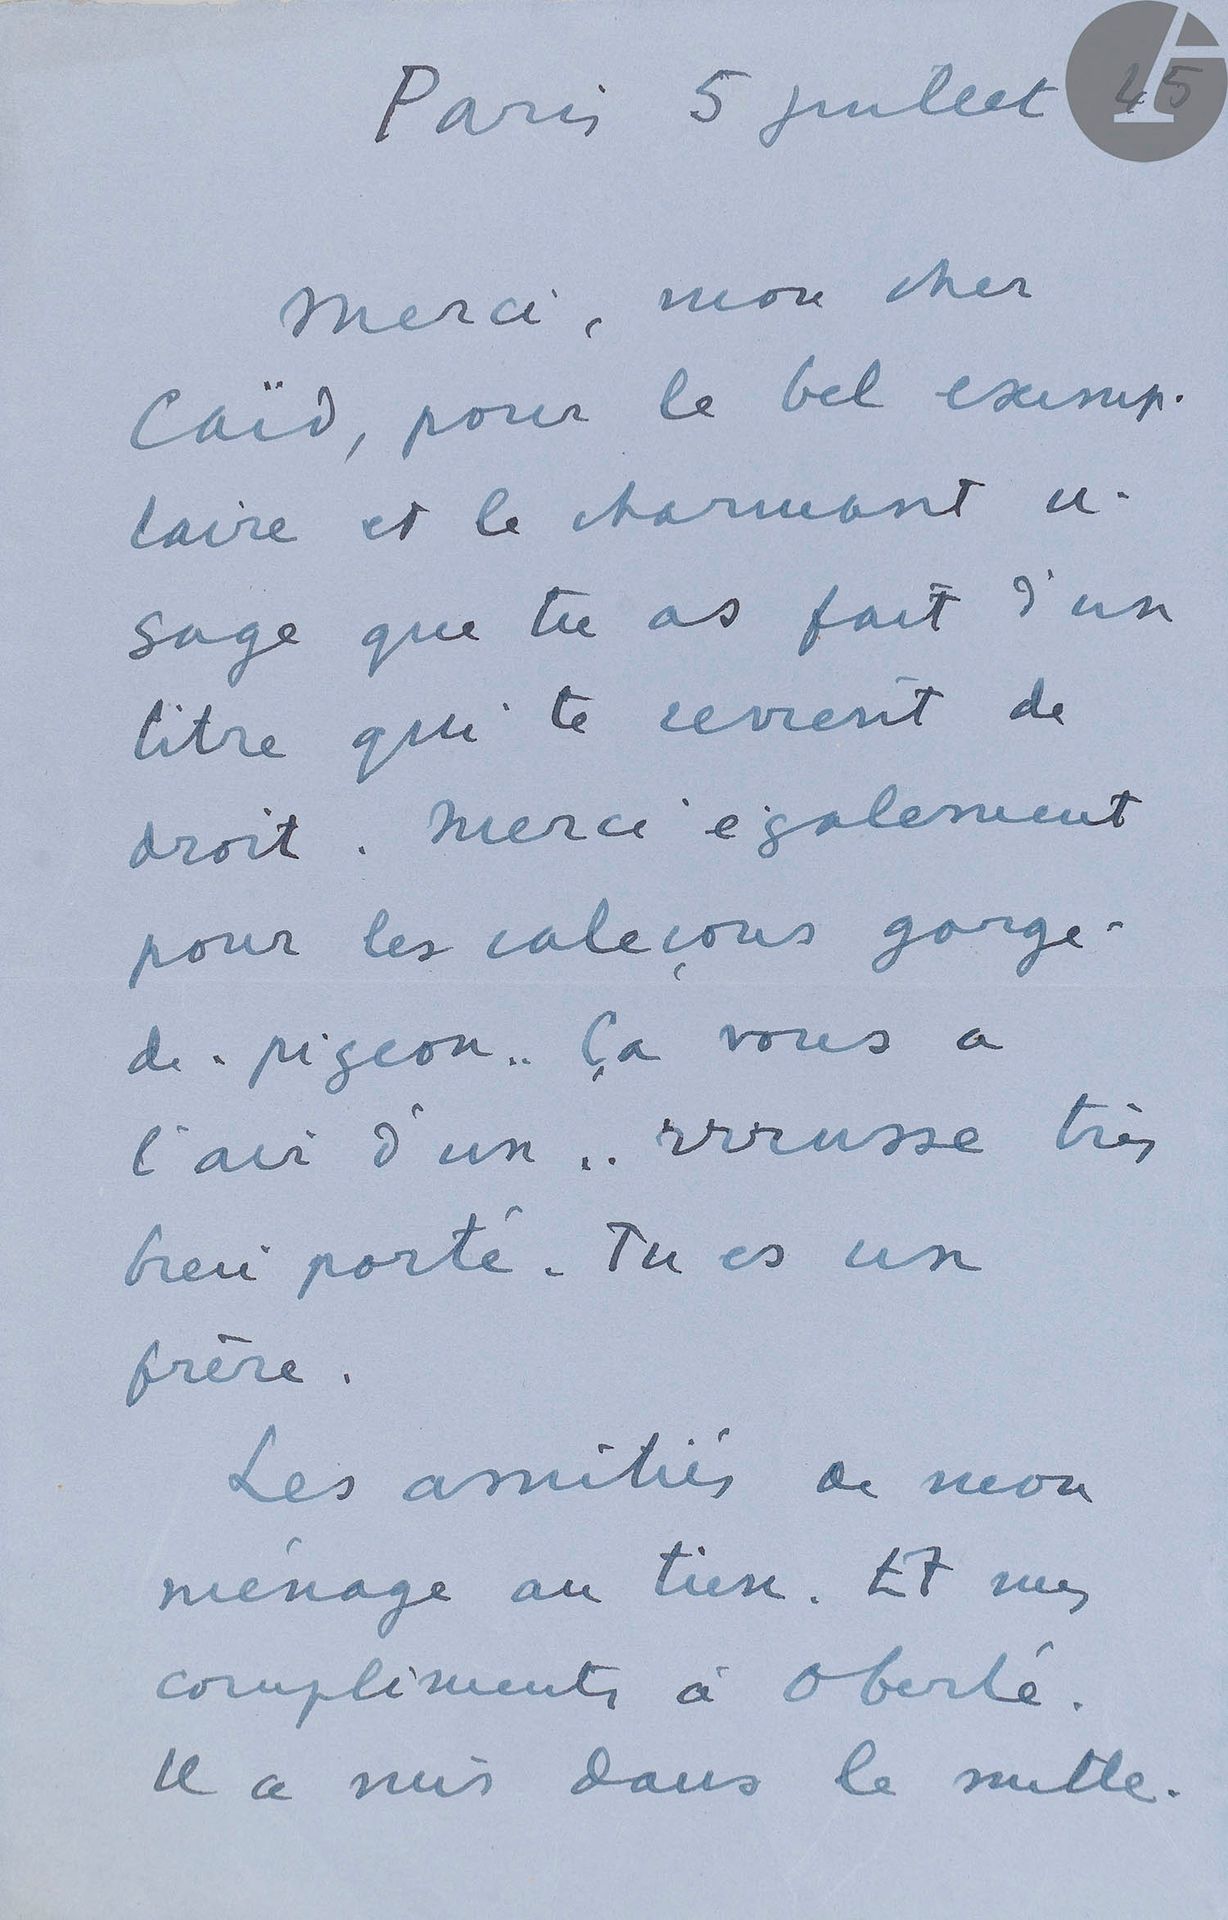 Paris 5 juillet 45
Merci, mon cher
Caïd, pour le bel exemp-
laire et le charmant u-
sage que tu as fait d'un
titre qui te revient de
droit. Merci également
pour les caleçons gorge-
de-pigeon.. Ça vous a
l'air d'un .. rrrusse très
bien porté. Tu es un
frère.
Les amitiés de mon
ménage au tien. Et mes
compliments à Oberlé.
Il a mis dans le mille.